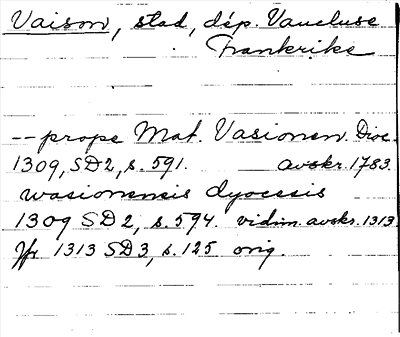 Vaison, stad, dép. Vaucluse
Frankrike
-- prope Mat. Vasionen. Dioc.
1309, SD2, s. 591. avskr. 1783.
wasionensis dyocesis
1309 SD 2, s. 594. vidim. avskr. 1313.
Jfr 1313 SD3, s. 125 orig.